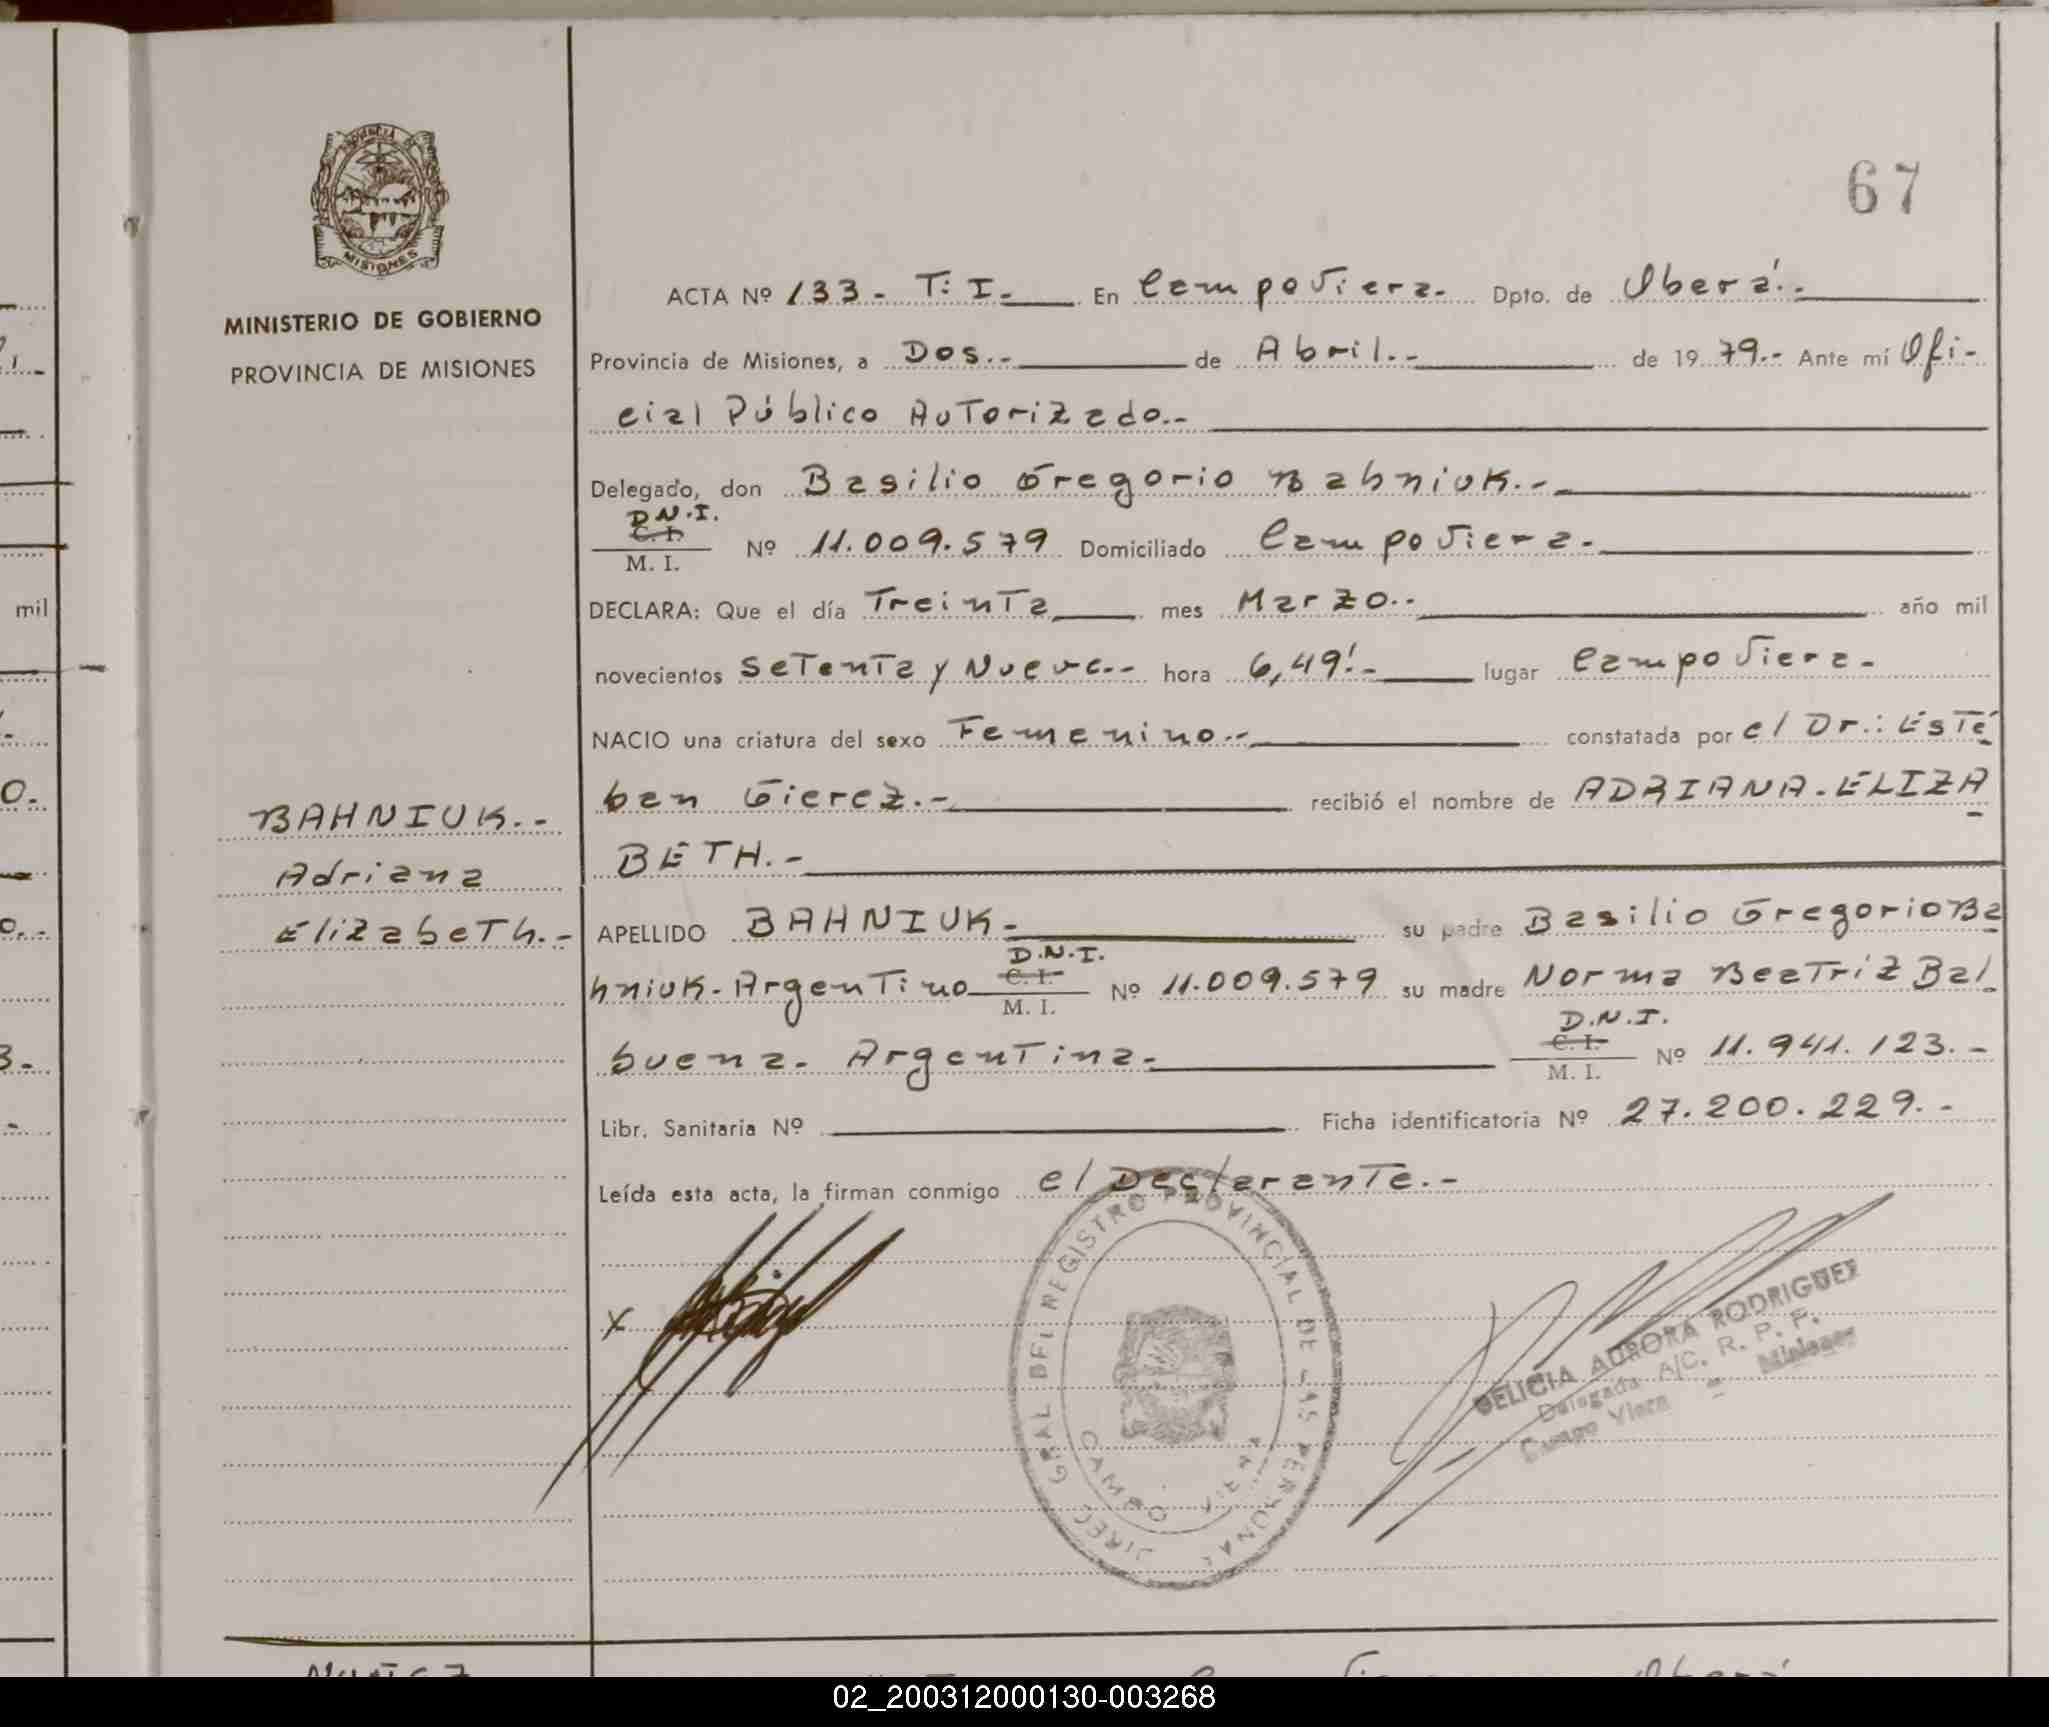 67
MINISTERIO DE GOBIERNO
PROVINCIA DE MISIONES
BAHNIUK.-
Adriana
Elizabeth.-
ACTA Nº 133.- T: I.- En Campo Viera.- Dpto. de Oberá.-
Provincia de Misiones, a Dos.- de Abril.- de 1979.- Ante mí Ofi-
cial Público Autorizado.-
Delegado, don Basilio Gregorio Bahniuk.-
D.N.I.
C. I.
M. I. Nº 11.009.579 Domiciliado Campo Viera.-
DECLARA: Que el día Treinta mes Marzo.- año mil
novecientos Setenta y Nueve.- hora 6,49'.- lugar Campo Viera.-
NACIO una criatura del sexo Femenino.- constatada por el Dr.: Esté
ban Gierez.- recibió el nombre de ADRIANA.ELIZA
BETH.-
APELLIDO BAHNIUK.- su padre Basilio Gregorio Ba
hniuk.- Argentino D.N.I. C. I. M. I. Nº 11.009.579 su madre Norma Beatriz Bal
buena.- Argentina.- D.N.I. C. I. M. I. Nº 11.941.123.-
Libr. Sanitaria Nº Ficha identificatoria Nº 27.200.229.-
Leída esta acta, la firman conmigo el Declarante.-
X
DIREC. GRAL DEL REGISTRO PROVINCIAL DE LAS PERSONAS
CAMPO VIERA
DELICIA AURORA RODRIGUEZ
Delegada A/C. R. P. P.
Campo Viera - Misiones
mil
02_200312000130-003268